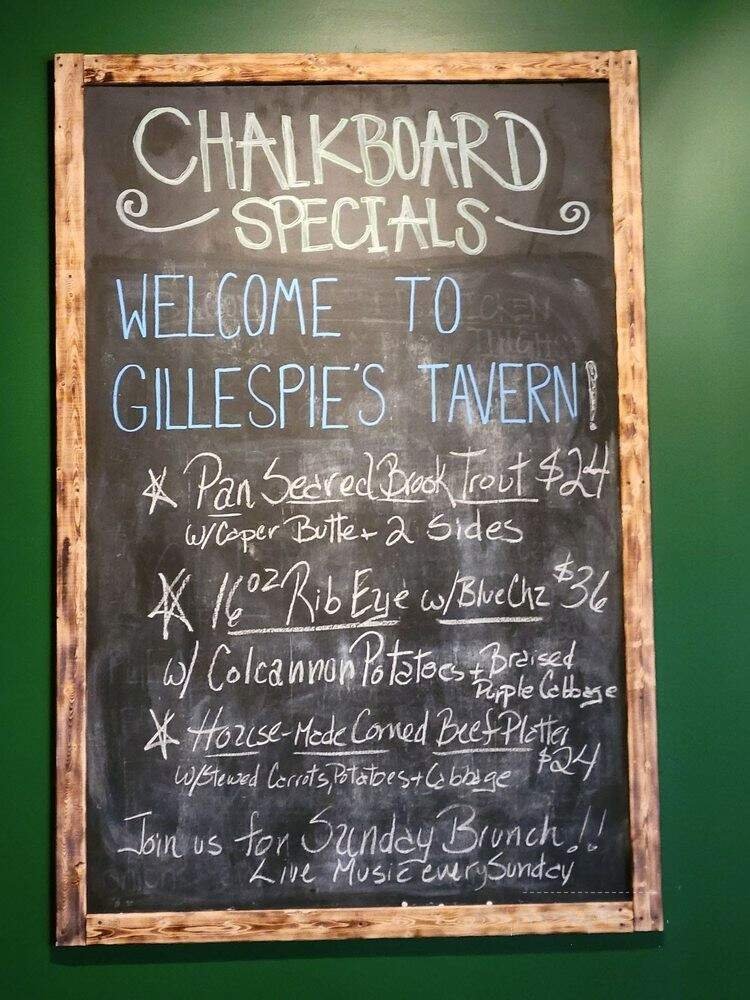 CHALKBOARD
SPECIALS
WELCOME TO
GILLESPIE'S TAVERN!
Pan Seared Brook Trout $24
w/Caper Butter 2 Sides
16oz Rib Eye w/BlueChz $36
w/ Colcannon Potatoes + Braised
Purple Cabbage
House-Made Corned Beef Platter
$24
w/Stewed Carrots, Potatoes + Cabbage
Join us for Sunday Brunch!!
Live Music every Sunday